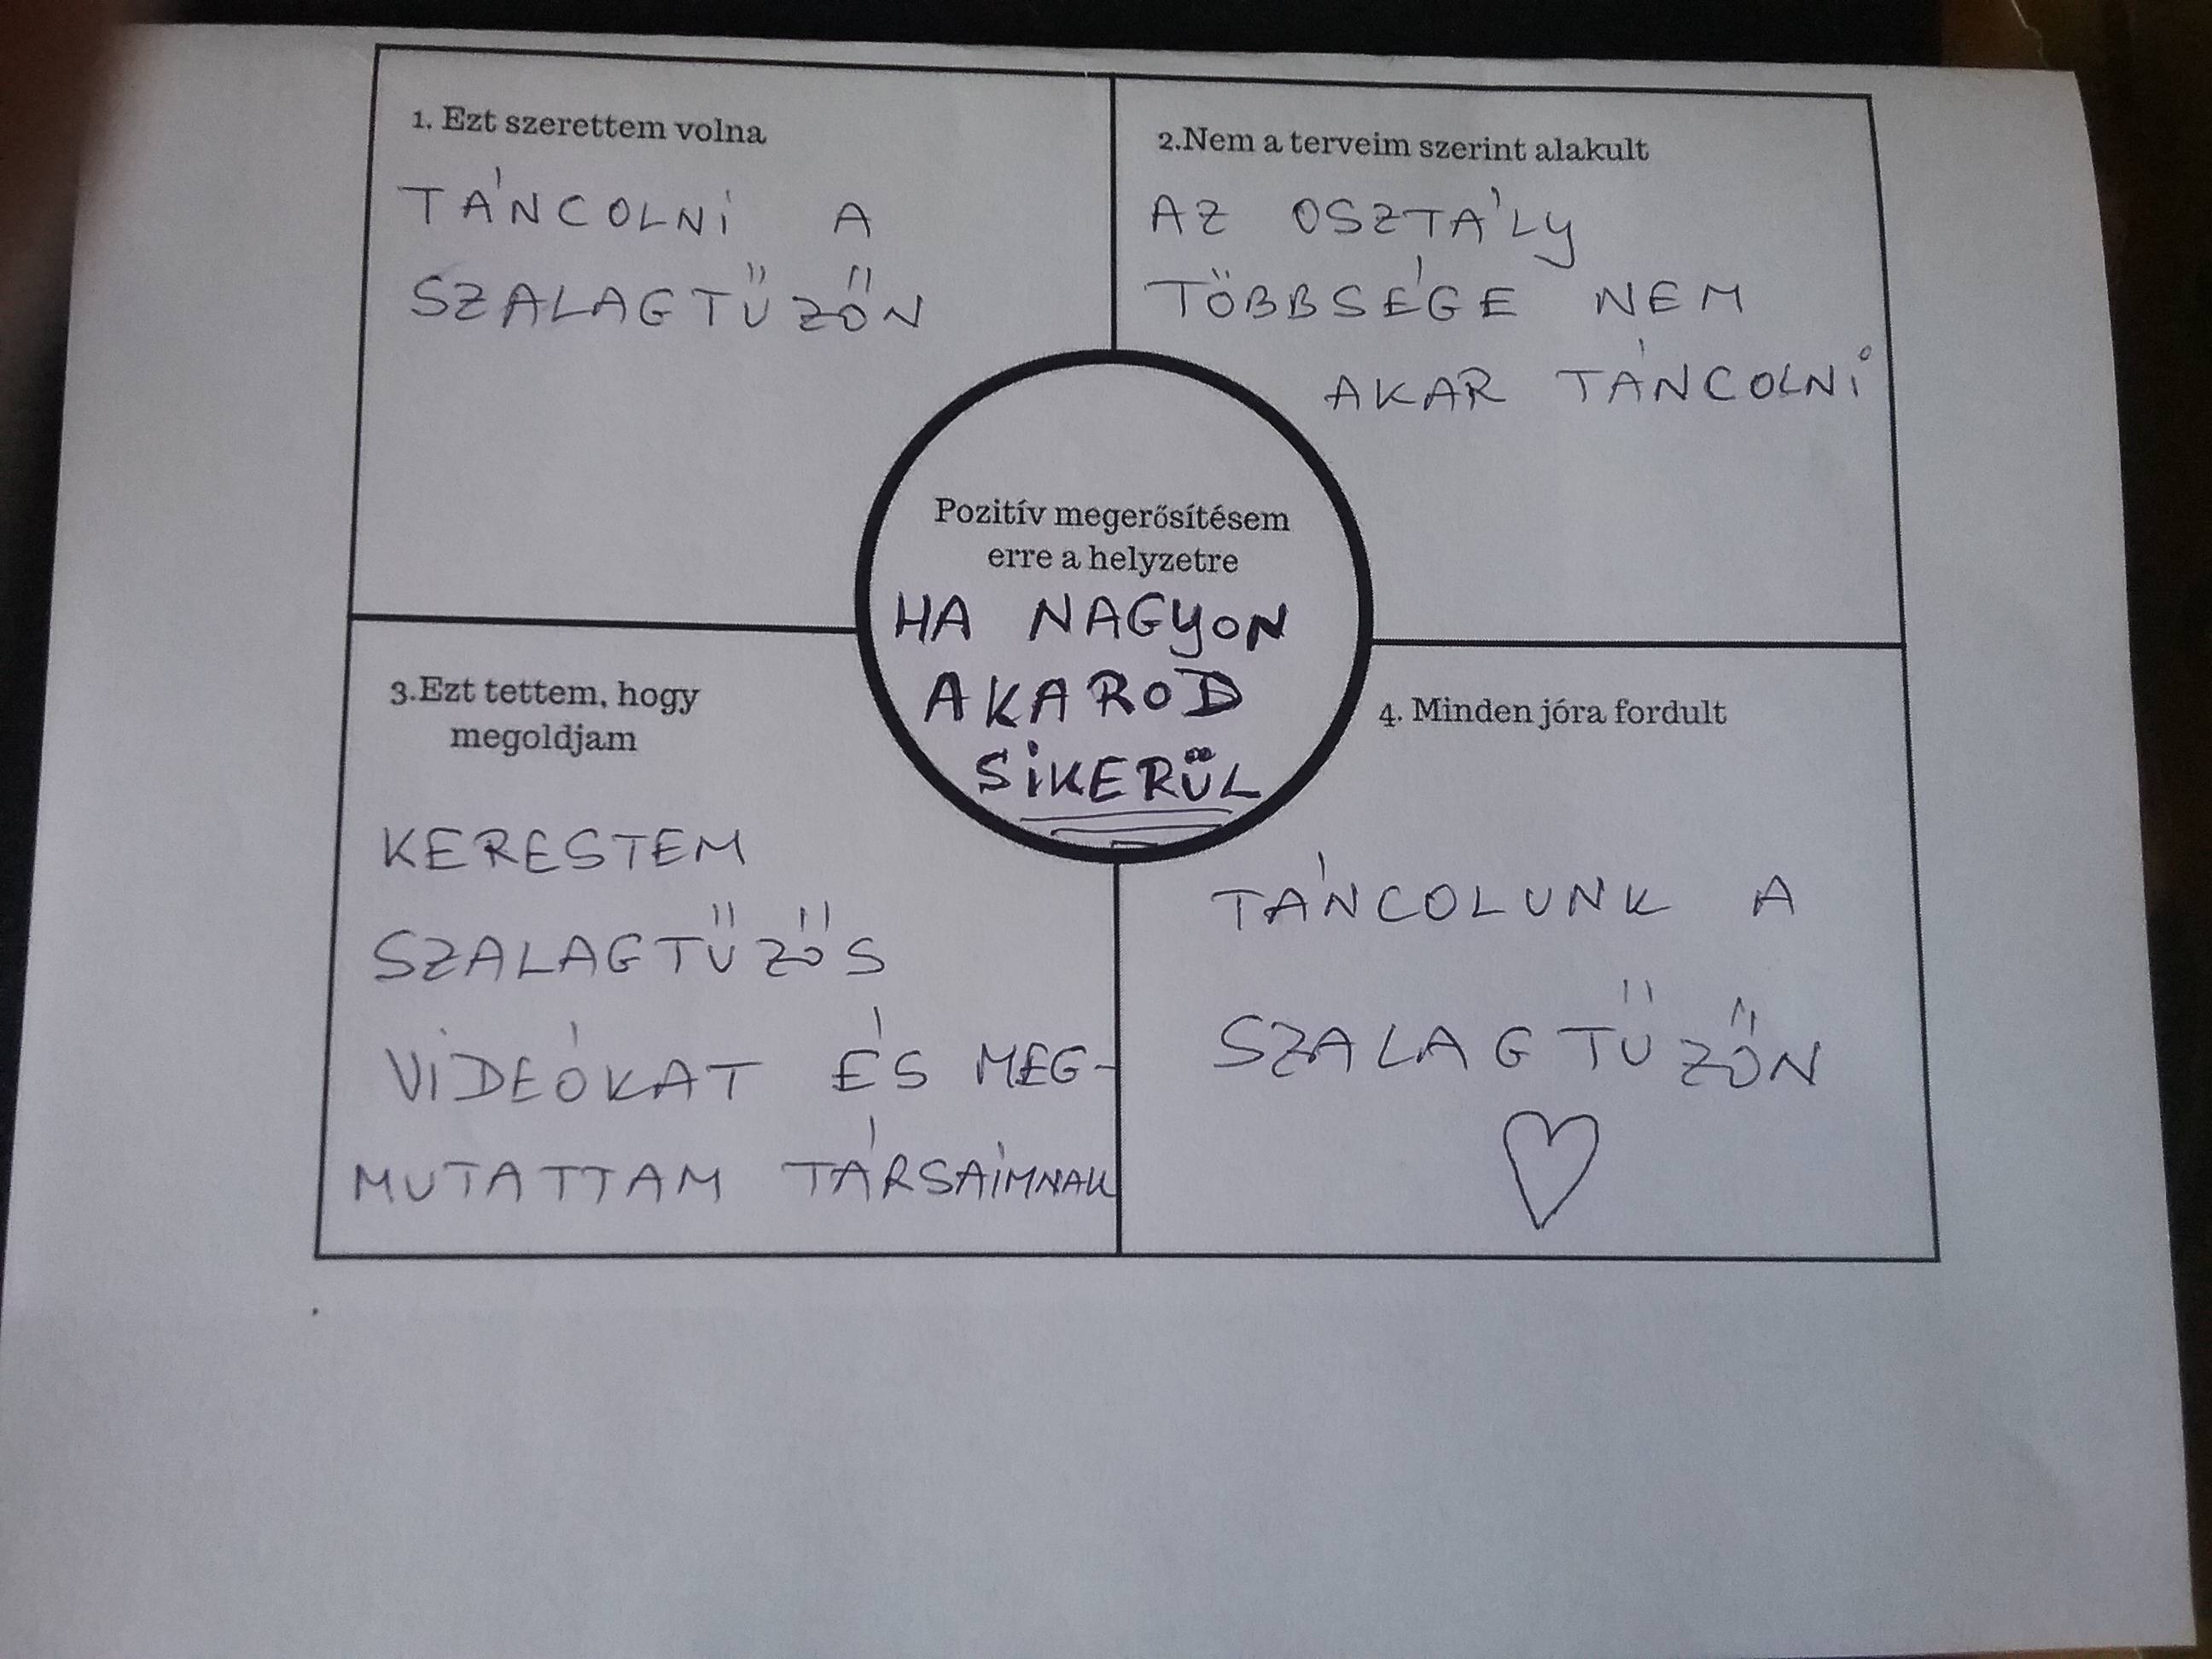 1. Ezt szerettem volna
TÁNCOLNI A
SZALAGTŰZŐN
2.Nem a terveim szerint alakult
AZ OSZTÁLY
TÖBBSÉGE NEM
AKAR TÁNCOLNI
Pozitív megerősítésem
erre a helyzetre
HA NAGYON
AKAROD
SIKERÜL
3.Ezt tettem, hogy
megoldjam
KERESTEM
SZALAGTŰZŐS
VIDEÓKAT ÉS MEG-
MUTATTAM TÁRSAIMNAK
4. Minden jóra fordult
TÁNCOLUNK A
SZALAGTŰZŐN